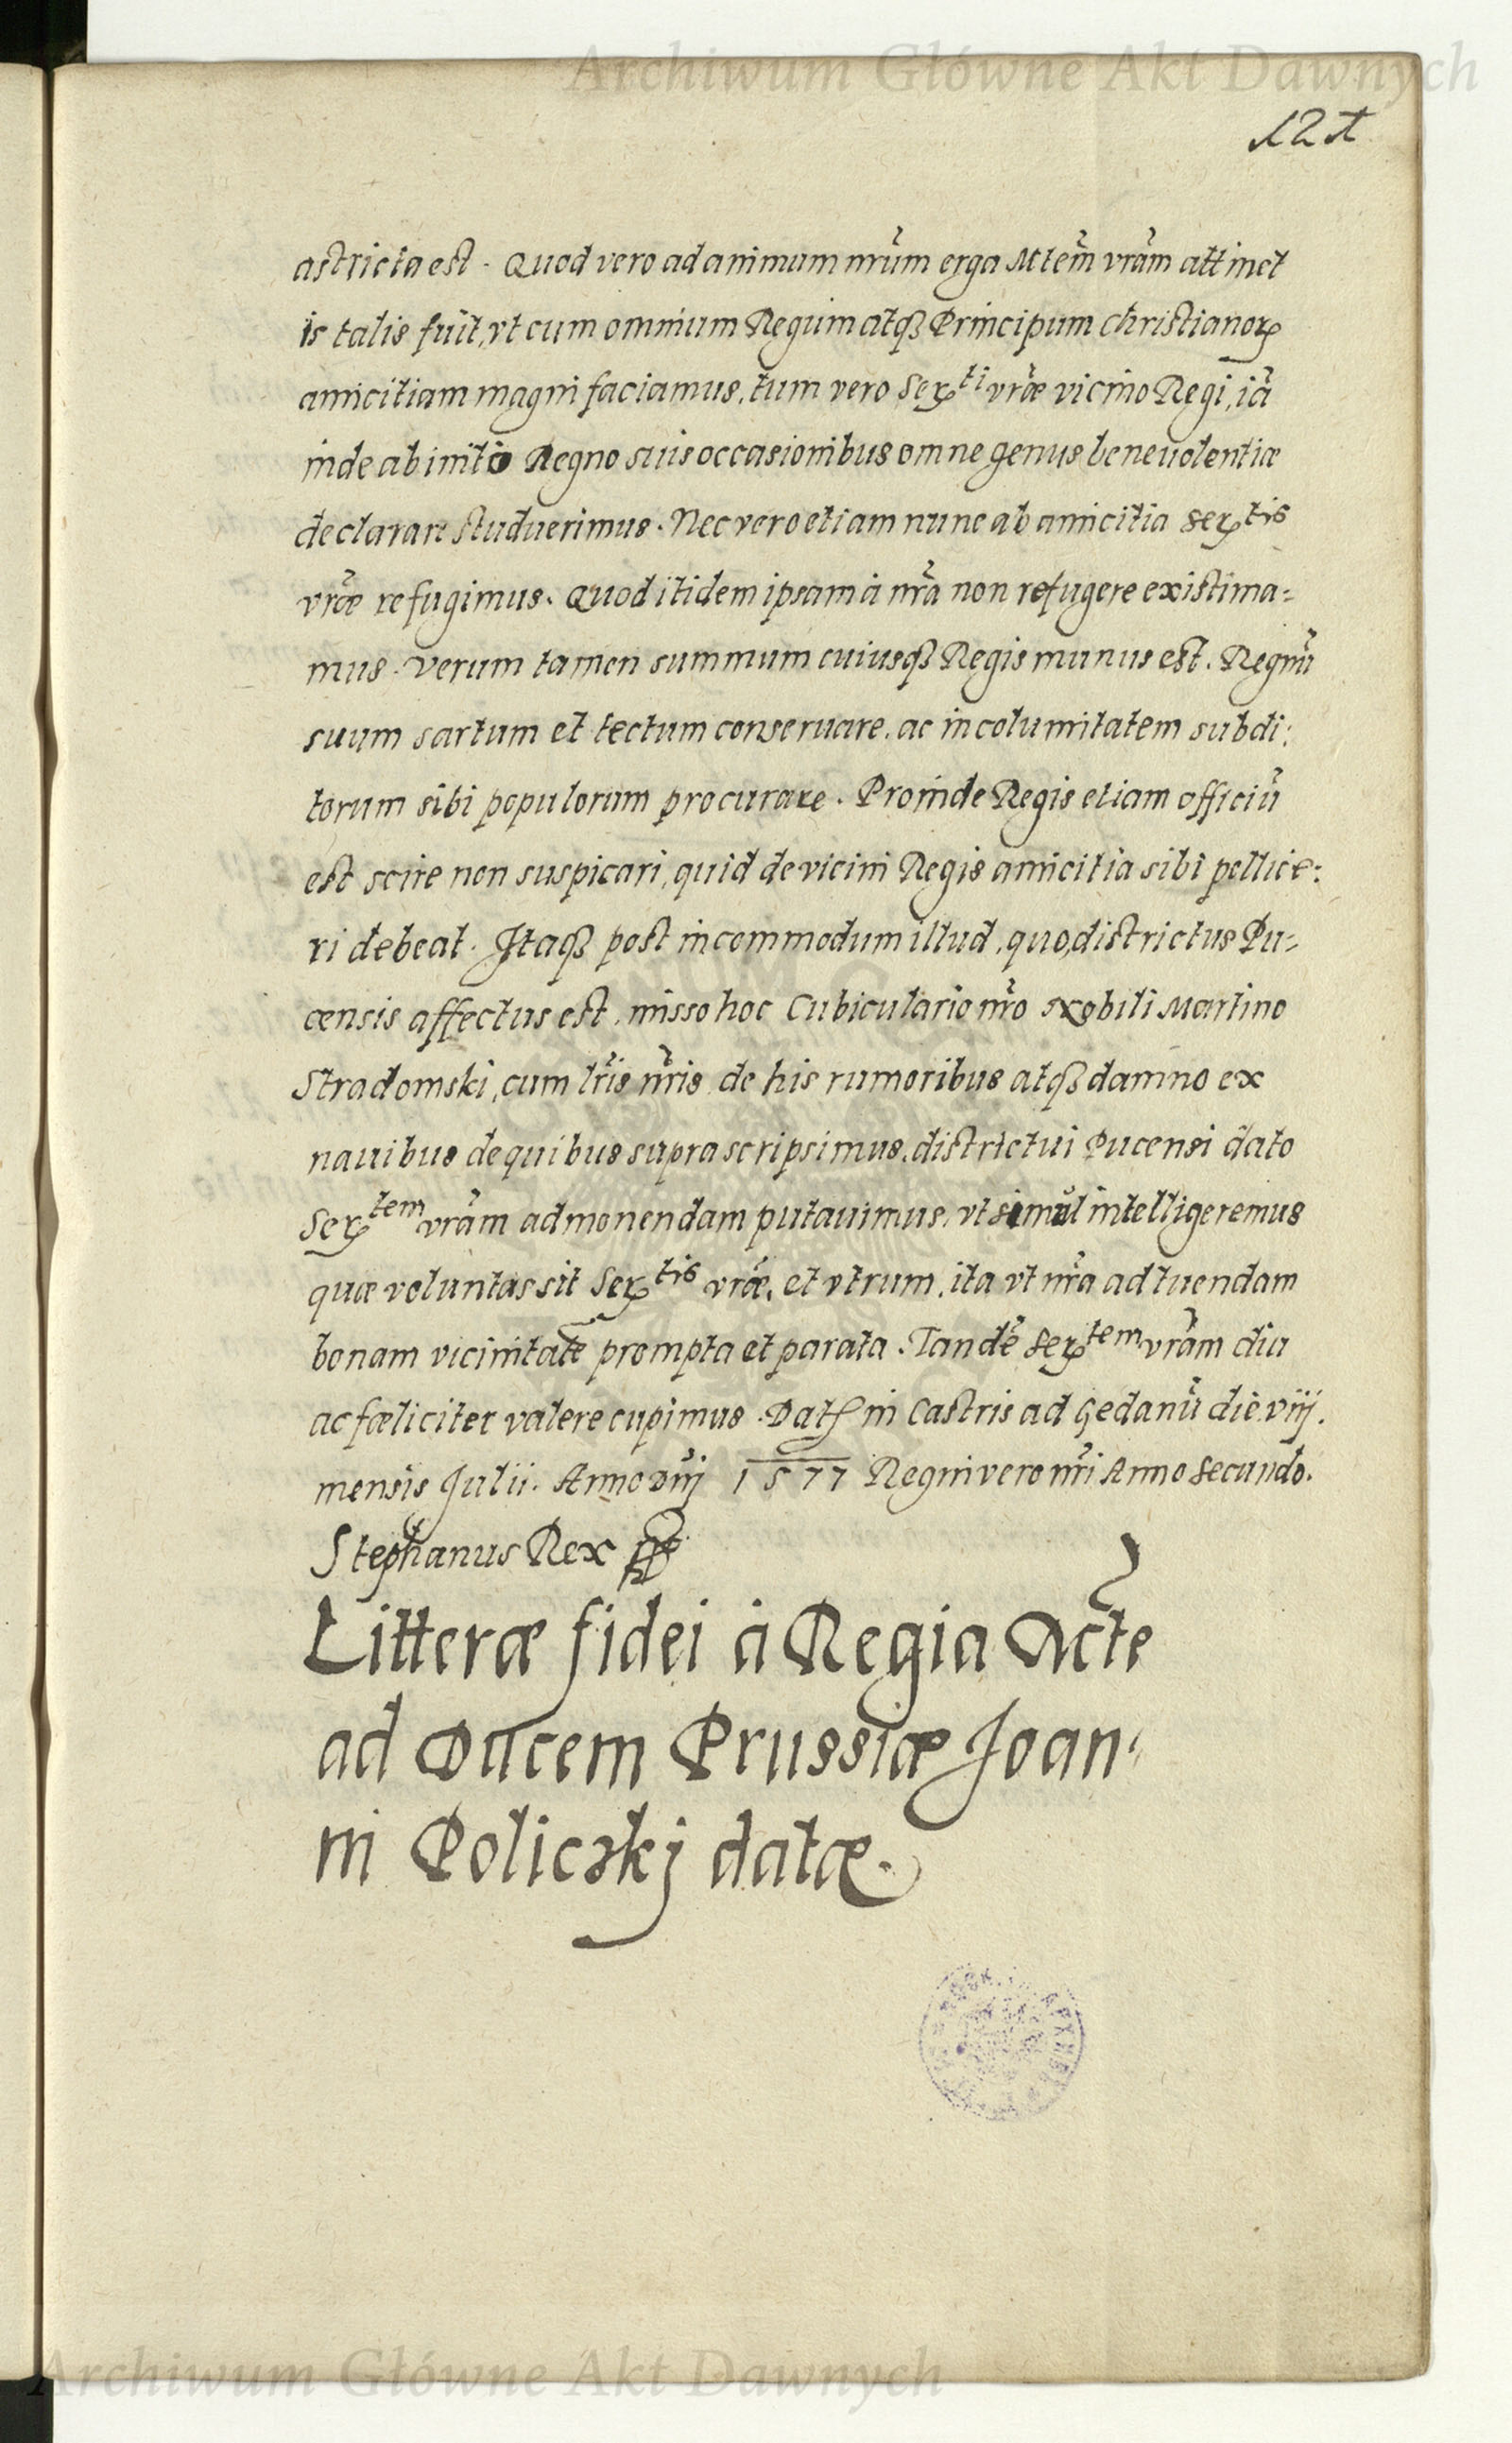 Archiwum Główne Akt Dawnych
121
astricta est. Quod vero ad animum nr̃um erga Mtem̃ vrãm attinet
is talis fuit, vt cum omnium Regum atqȝ Principum Christianorꝝ
amicitiam magni faciamus, tum vero Serᵗⁱ vrãe vicino Regi, iã
inde ab inito Regno suis occasionibus omne genus beneuolentiæ
declarare studuerimus. Nec vero etiam nunc ab amicitia Serᵗⁱˢ
vrãe refugimus. Quod itidem ipsam à nrã non refugere existima=
mus. Verum tamen summum cuiusqȝ Regis munus est. Regnũ
suum sartum et tectum conseruare, ac incolumitatem subdi:
torum sibi populorum procurare. Proinde Regis etiam officiũ
est scire non suspicari, quid de vicini Regis amicitia sibi pollice:
ri debeat. Itaqȝ post incommodum illud, quo, districtus Pu=
censis affectus est, misso hoc Cubiculario nrõ Nobili Martino
Stradomski, cum lrĩs nrĩs de his rumoribus atqȝ damno ex
nauibus de quibus supra scripsimus, districtui Pucensi dato
Serᵗᵉᵐ vrãm admonendam putauimus, vt simul intelligeremus
quæ voluntas sit Serᵗⁱˢ vrãe, et vtrum, ita vt nrã ad tuendam
bonam vicinitatẽ prompta et parata. Tandẽ Serᵗᵉᵐ vrãm diu
ac fœliciter valere cupimus. Dat in Castris ad Gedanũ die viij.
mensis Julii. Anno Dnj̃ 1577 Regni vero nrĩ Anno Secundo.
Stephanus Rex
Litteræ fidei à Regia Mt̃e
ad Ducem Prussiæ Joan-
ni Policzkj datæ.
Archiwum Główne Akt Dawnych